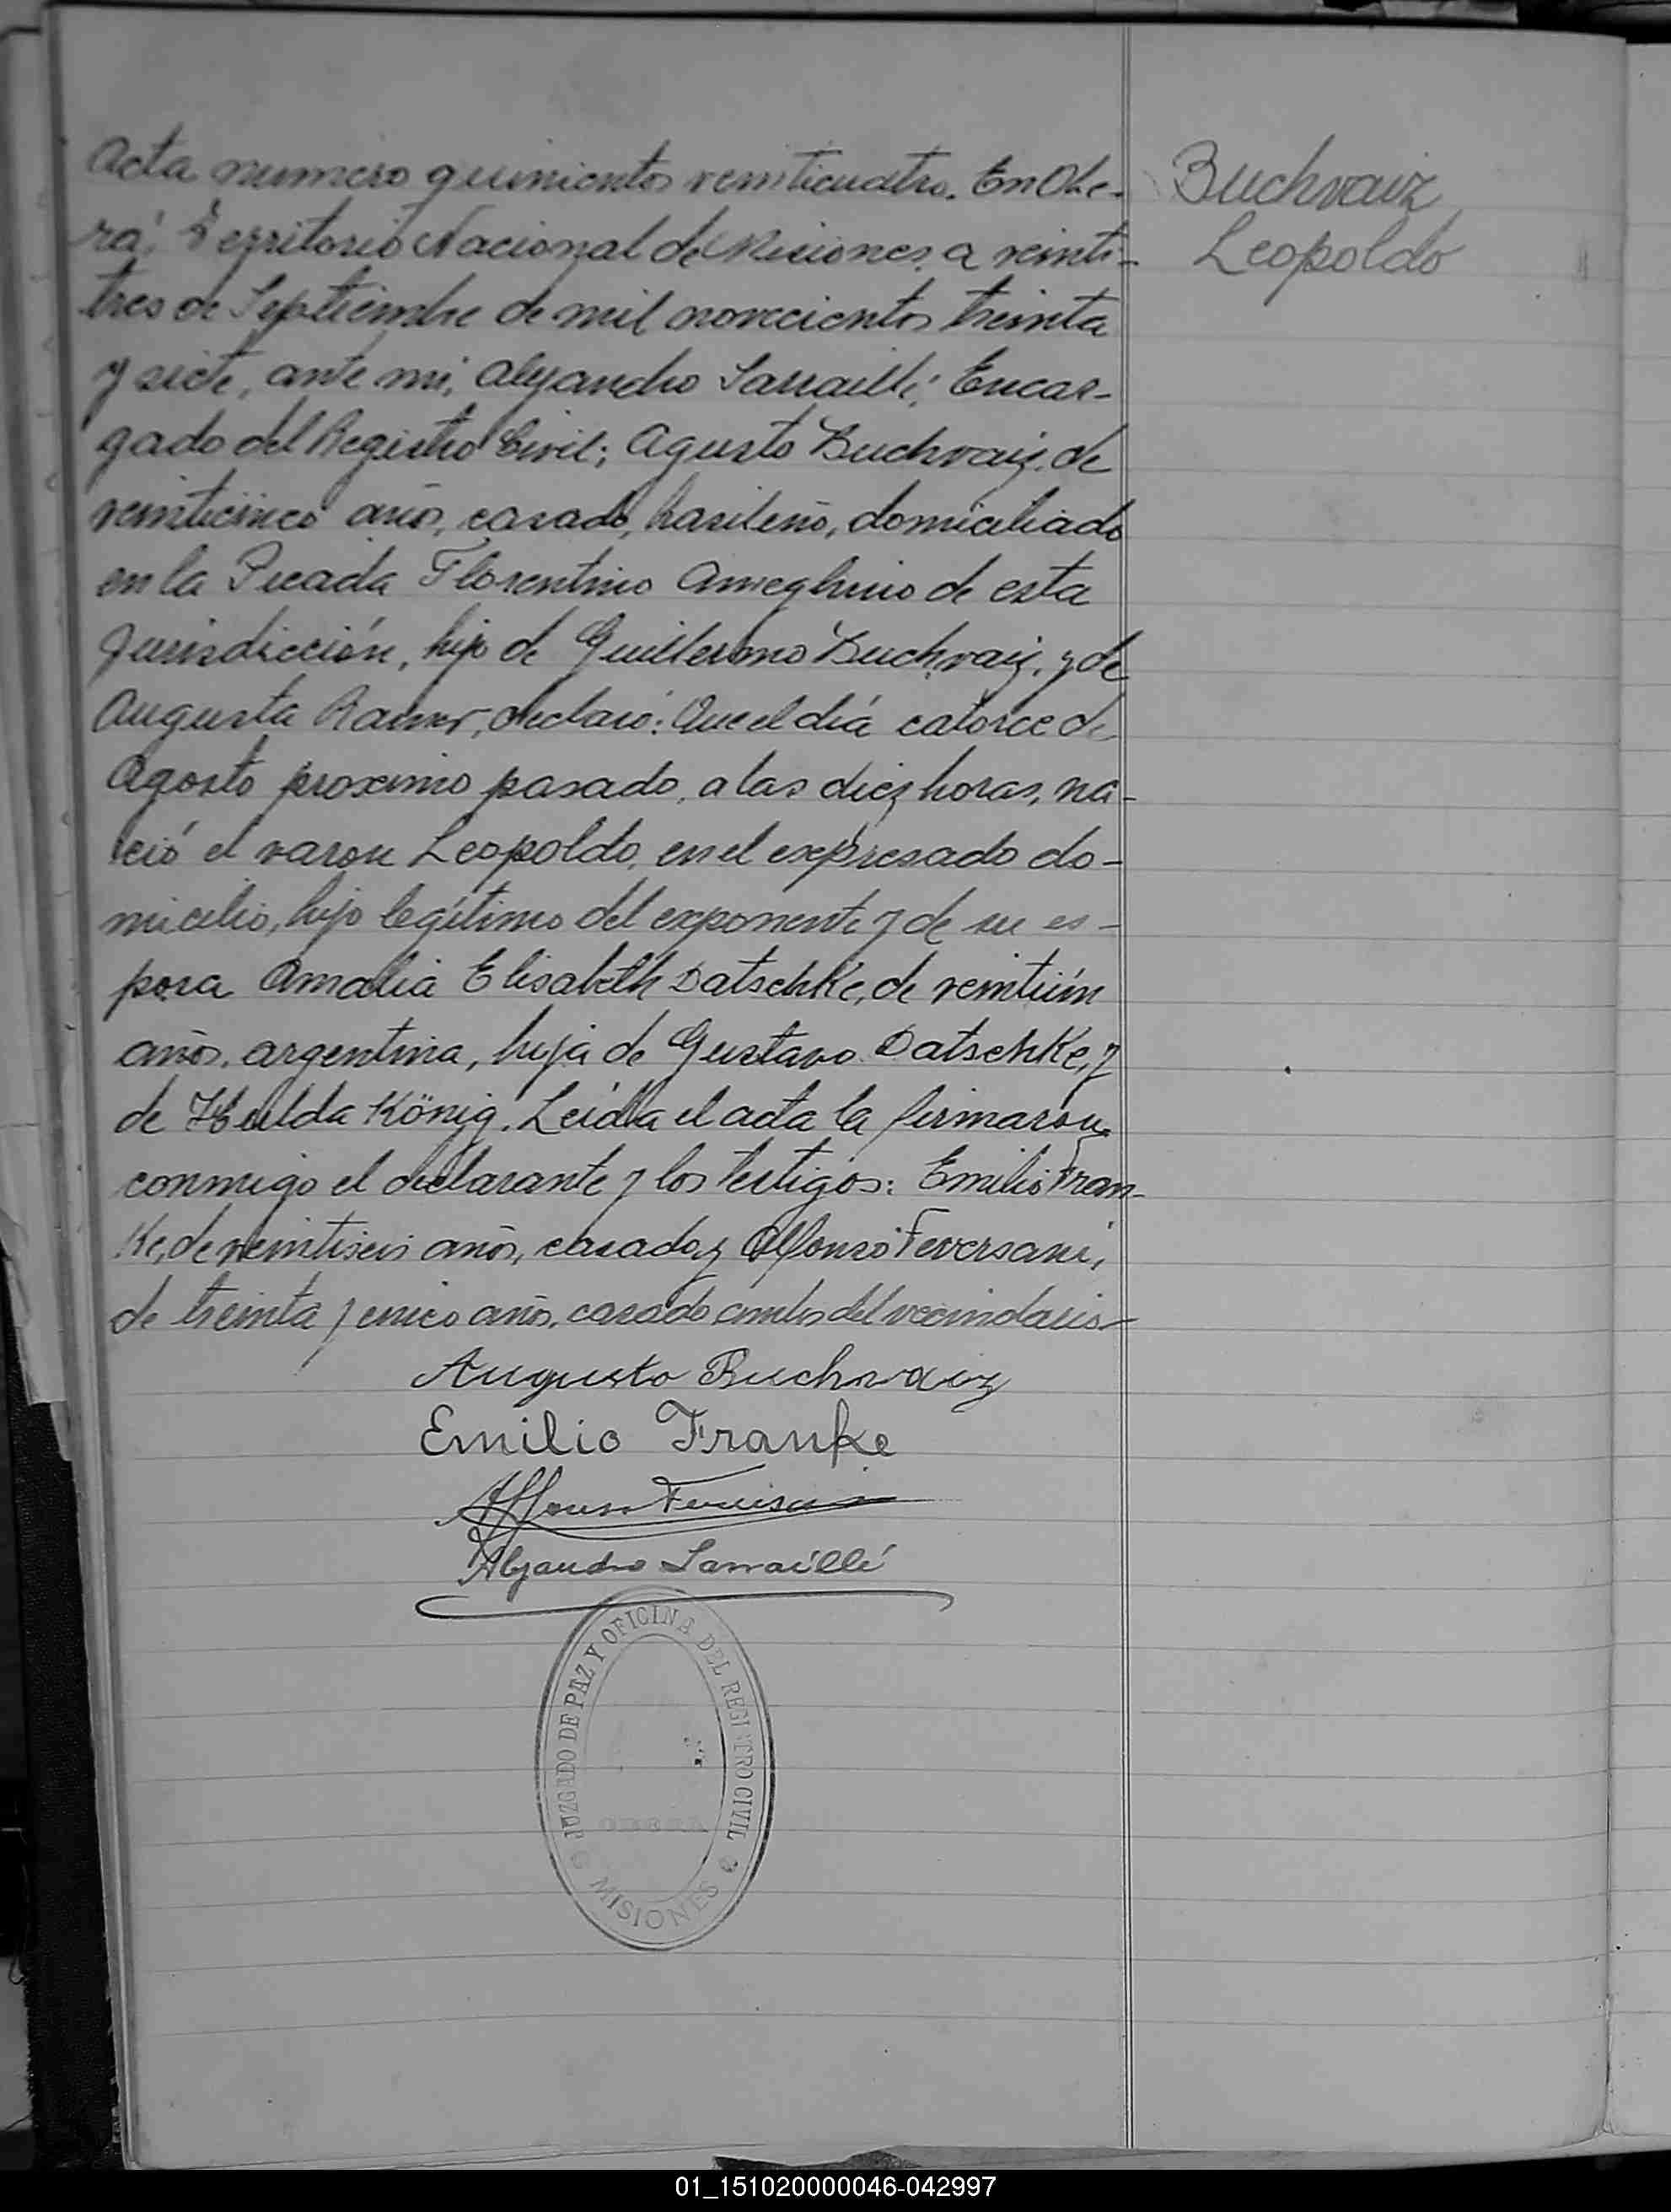 Acta numero quinientos veinticuatro. En Obe-
rá, Territorio Nacional de Misiones, a veinti-
tres de Septiembre de mil novecientos treinta
y siete, ante mi, Alejandro Sarraillé, Encar-
gado del Registro Civil; Agusto Buchvaiz, de
veinticinco años, casado, brasileño, domiciliado
en la Picada Florentino Ameghino de esta
Jurisdicción, hijo de Guillermo Buchvaiz, y de
Augusta declaró: Que el día catorce de
Agosto proximo pasado, a las diez horas, na-
ció el varon Leopoldo, en el expresado do-
micilio, hijo legítimo del exponente y de su es-
posa Amalia Elisabeth Datschke, de veintiún
años, argentina, hija de Gustavo Datschke, y
de Hulda König. Leída el acta la firmaron
conmigo el declarante y los testigos: Emilio Fran-
ke, de veintiseis años, casado y Alfonso Feversani,
de treinta y cinco años, casado ambos del vecindario
Augusto Buchvaiz
Emilio Franke
Alfonso
Alejandro Sarraillé
JUZGADO DE PAZ Y OFICINA DEL REGISTRO CIVIL
OBERA
MISIONES
Buchvaiz
Leopoldo
01_151020000046-042997